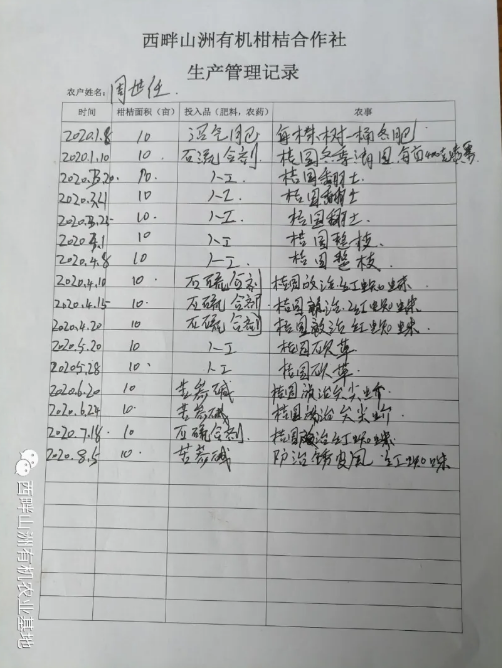 西畔山洲有机柑桔合作社
生产管理记录
农户姓名：周世任
时间 柑桔面积（亩） 投入品（肥料，农药） 农事
2020.1.8 10 沼气肥 每株树一桶冬肥
2020.1.10 10. 石流合剂. 桔园冬季清园.
2020.3.20 10. 人工 桔园翻土.
10 人工. 桔园翻土
2020.3.25 10. 人工. 桔园翻土.
10 人工 桔园整枝.
2020.4.8 10 人工. 桔园整枝.
2020.4.10 10. 石硫合剂 桔园防治红蜘蛛.
2020.4.15 10. 石硫合剂 桔园防治红蜘蛛
2020.4.20 10 石硫合剂 桔园防治红蜘蛛.
2020.5.20 10 人工 桔园砍草
2020.5.28 10. 人工 桔园砍草.
2020.6.20 10 苦参碱 桔园防治矢尖蚧
2020.6.24 10. 苦参碱 桔园防治矢尖蚧.
2020.7.18. 10 石硫合剂. 桔园防治红蜘蛛.
2020.8.5 10. 苦参碱 防治锈皮风 红蜘蛛
西畔山洲有机农业基地